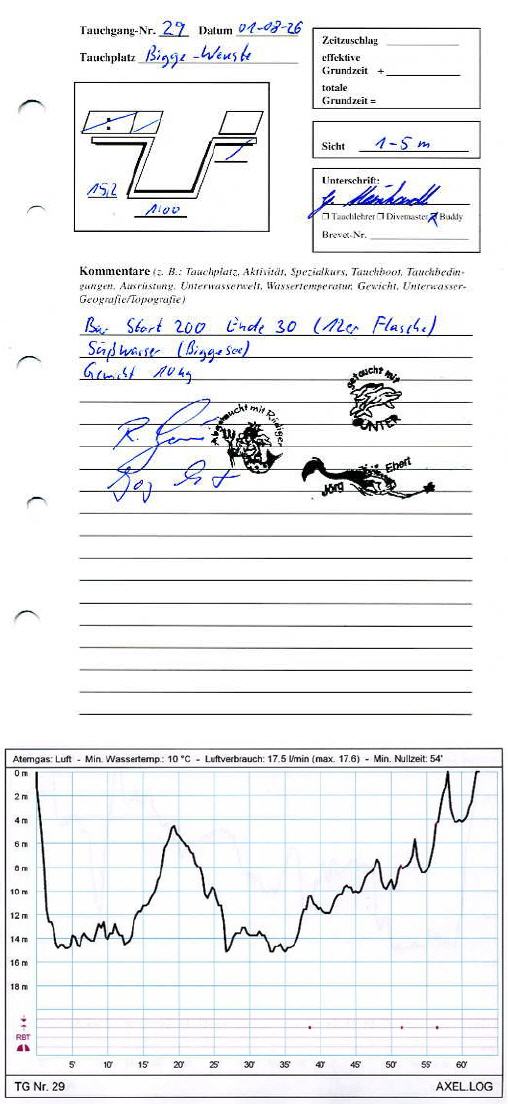 Tauchgang-Nr. 29 Datum 01-08-26
Tauchplatz Bigge-Weuste
Zeitzuschlag
effektive
Grundzeit +
totale
Grundzeit =
15,2
1:00
Sicht 1-5 m
Unterschrift:
Tauchlehrer Divemaster Buddy
Brevet-Nr.
Kommentare (z. B.: Tauchplatz, Aktivität, Spezialkurs, Tauchboot, Tauchbedin-
gungen, Ausrüstung, Unterwasserwelt, Wassertemperatur, Gewicht, Unterwasser-
Geografie/Topografie)
Bar Start 200 Ende 30 (12er Flasche)
Süßwasser (Biggesee)
Gewicht 10 kg
getaucht mit
GÜNTER
Abgetaucht mit Rüdiger
Jörg Ebert
Atemgas: Luft - Min. Wassertemp.: 10 °C - Luftverbrauch: 17.5 l/min (max. 17.6) - Min. Nullzeit: 54'
0 m
2 m
4 m
6 m
8 m
10 m
12 m
14 m
16 m
18 m
RBT
5' 10' 15' 20' 25' 30' 35' 40' 45' 50' 55' 60'
TG Nr. 29 AXEL.LOG